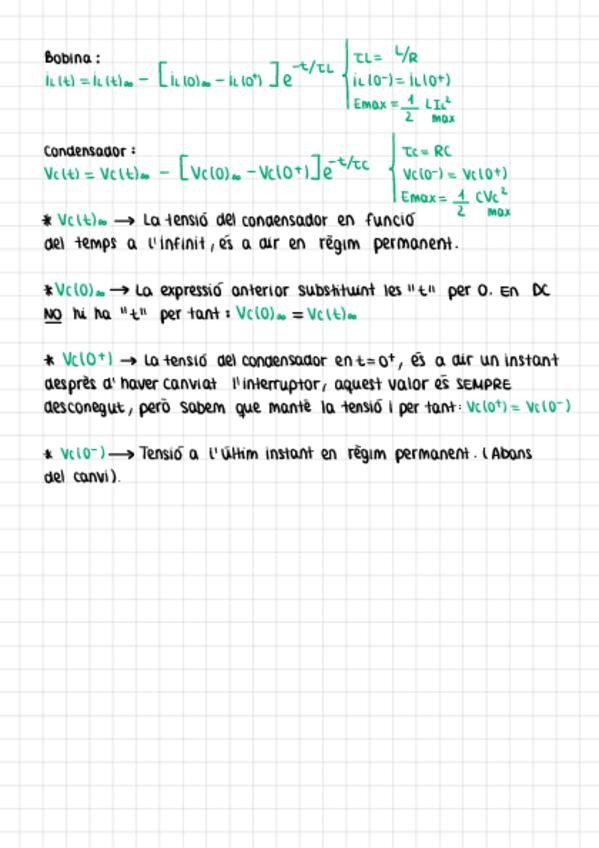 Bobina:
iL(t) = iL(t)∞ - [iL(0)∞ - iL(0⁺)]e^-t/τL
τL = L/R
iL(0⁻) = iL(0⁺)
Emax = 1/2 L IL² max
Condensador:
Vc(t) = Vc(t)∞ - [Vc(0)∞ - Vc(0+)]e^-t/τc
τc = RC
Vc(0⁻) = Vc(0+)
Emax = 1/2 CVc² max
* Vc(t)∞ → La tensió del condensador en funció
del temps a l'infinit, és a dir en règim permanent.
* Vc(0)∞ → La expressió anterior substituint les "t" per 0. En DC
NO hi ha "t" per tant: Vc(0)∞ = Vc(t)∞
* Vc(0+) → La tensió del condensador en t=0⁺, és a dir un instant
desprès d'haver canviat l'interruptor, aquest valor és SEMPRE
desconegut, però sabem que manté la tensió i per tant: Vc(0⁺) = Vc(0⁻)
* Vc(0⁻) → Tensió a l'últim instant en règim permanent. (Abans
del canvi).